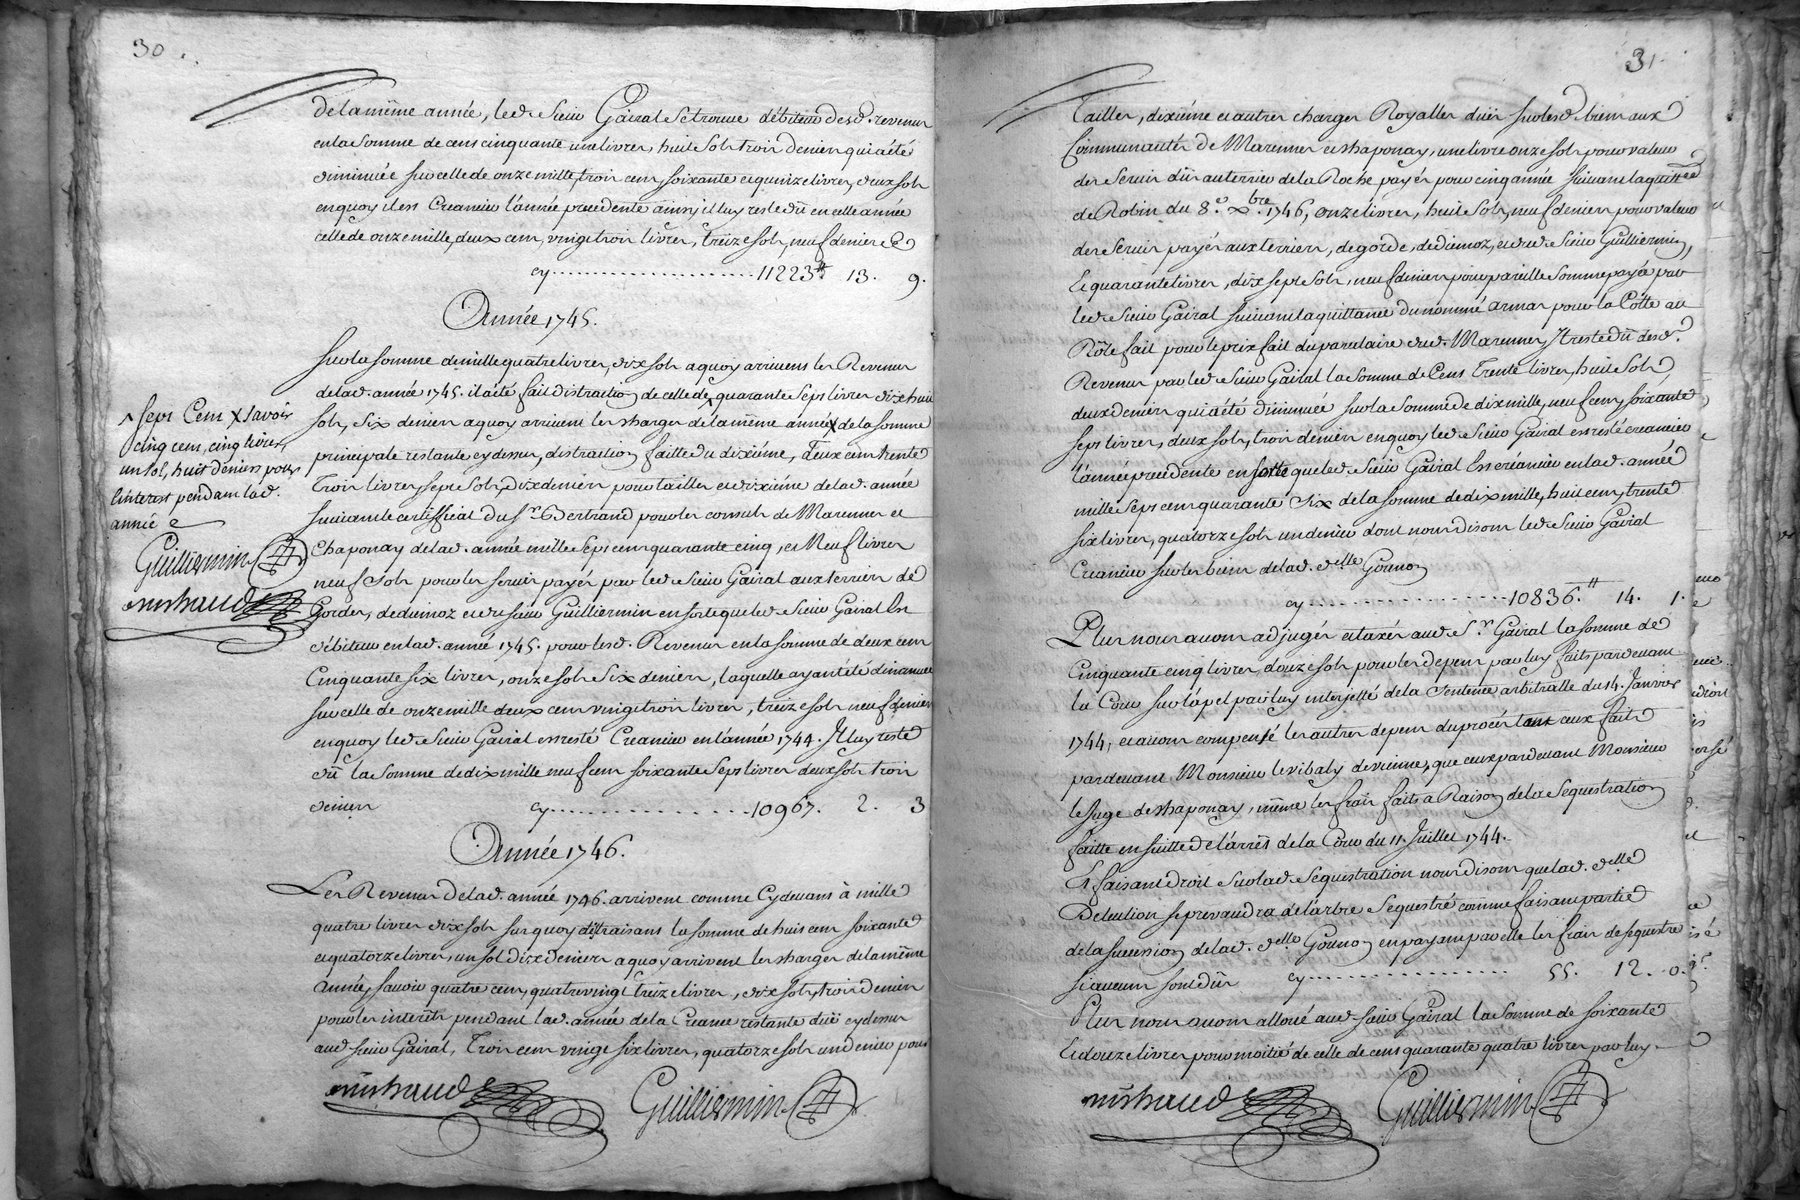 30
de la même année, led. Sieur Gairal se trouve débiteur desd. revenus
en la somme de cens cinquante une livres, huit sols trois deniers qui a été
diminuée sur celle de onze mille, trois cens, soixante et quinze livres, deux sols
en quoy il est Creancier l'année precedente ainsy il luy reste dû en cette année
celle de onze mille, deux cens, vingt trois livres, treize sols, neuf deniers
cy 11223 ₶ 13. 9.
Année 1745.
Sur la somme de mille quatre livres, dix sols a quoy arrivent les Revenus
de lad. année 1745. il a été fait distraction de celle de ^ quarante sept livres dix huit
sols, six deniers a quoy arrivent les charges de la même année X de la somme
principale restante cy dessus, distraction faitte du dixiéme, Deux cens trente
Trois livres, sept sols, dix deniers pour tailles et dixiéme de lad. année
suivant le certifficat du Sr. Bertrand pour les consuls de Marennes et
Chaponay de lad. année mille sept cens quarante cinq, et Neuf livres
neuf sols pour les servis payés par led. Sieur Gairal aux terriers de
Gordes, dediémoz et du Sieur Guilliermin en sorte que led. Sieur Gairal Est
débiteur en lad. année 1745. pour lesd. Revenus en la somme de deux cens
Cinquante six livres, onze sols six deniers, laquelle ayant été diminuée
sur celle de onze mille deux cens vingt trois livres, treize sols neuf deniers
en quoy led. Sieur Gairal est resté Creancier en l'année 1744. Il luy reste
dû la somme de dix mille neuf cens soixante sept livres deux sols trois
deniers cy 10967. 2. 3
Année 1746.
Les Revenus de lad. année 1746. arrivent comme Cy devant à mille
quatre livres dix sols sur quoy distraisant la somme de huit cens soixante
et quatorze livres, un sol dix deniers a quoy arrivent les charges de la même
année, savoir quatre cens, quatre vingt treize livres, dix sols, trois deniers
pour les interêts pendant lad. année de la Creance restante düe cy dessus
aud. Sieur Gairal, Trois cens vingt six livres, quatorze sols un denier pour
michaud Guilliermin
^ sept Cens X savoir
cinq cens, cinq livres,
un sol, huit deniers pour
l'interest pendant lad.
année
Guilliermin
michaud
31.
Tailles, dixiéme et autres charges Royalles düës sur lesd. biens aux
Communautés de Marennes et Chaponay, une livre onze sols pour valeur
des servis dûs au terrier de la Roche payés pour cinq années suivant la quittce
de Robin du 8e. Xbre. 1746, onze livres, huit sols, neuf deniers pour valeur
des servis payés aux terriers, de gorde, dediémoz, et dud. Sieur Guilliermin,
Et quarante livres, dix sept sols, neuf deniers pour pareille somme payée par
led. Sieur Gairal suivant la quittance du nommé armar pour la Cotte au
Rôle fait pour le prix fait du parulaire dud. Marennes, Il reste dû desd.
Revenus par led. Sieur Gairal la somme de Cens Trente livres, huit sols
deux deniers qui a été diminuée sur la somme de dix mille, neuf cens, soixante
sept livres, deux sols, trois deniers en quoy led. Sieur Gairal est resté creancier
l'année precedente en sorte que led. Sieur Gairal Est créancier en lad. année
mille sept cens quarante six de la somme de dix mille, huit cens, trente
six livres, quatorze sols un denier dont nous disons led. Sieur Gairal
Creancier sur les biens de lad. Delle Gounon
cy 10836 ₶ 14. 1.
Plus nous avons adjugés et taxés aud. Sr. Gairal la somme de
Cinquante cinq livres, douze sols pour les depens par luy faits pardevant
la Cour sur l'apel par luy interjetté de la Sentence arbitralle du 14. Janvier
1744, et avons compensé les autres depens du procés tant ceux faits
pardevant Monsieur le vibaly de vienne, que ceux pardevant Monsieur
le Juge de Chaponay, même les frais faits a Raison de la sequestration
faitte en suitte de l'arrêt de la Cour du 11. Juillet 1744.
Et faisant droit sur lad. sequestration nous disons que lad. Delle.
Delution se prevaudra de l'arbre sequestré comme faisant partie
de la succession de lad. Delle Gounon en payant par elle les frais de sequestre
si aucuns sont dûs cy 55. 12. 0.
Plus nous avons alloué aud. Sieur Gairal la somme de soixante
Et douze livres pour moitié de celle de cens quarante quatre livres par luy
michaud Guilliermin